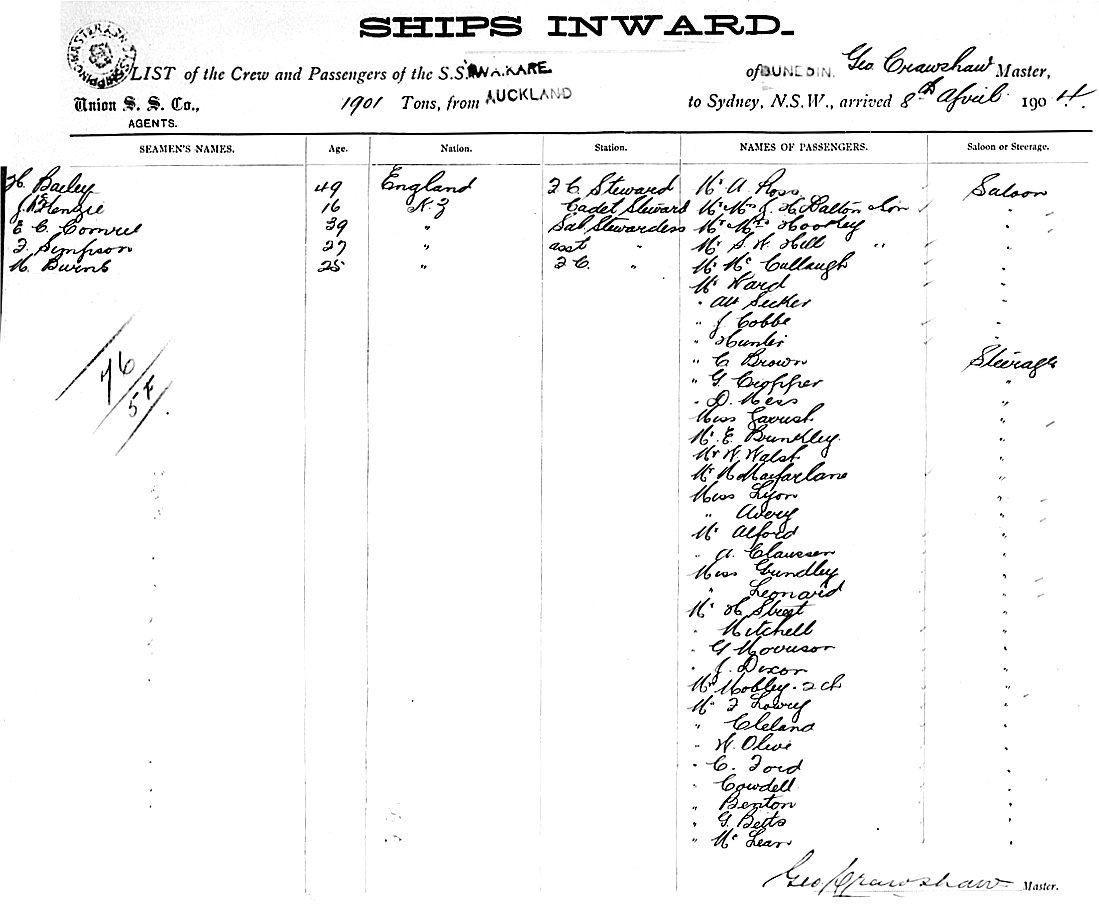 SHIPS INWARD.
LIST of the Crew and Passengers of the S.S. WAIKARE of DUNEDIN. Geo Crawshaw Master,
Union S. S. Co., 1901 Tons, from AUCKLAND to Sydney, N.S.W., arrived 8th April 1904.
AGENTS.
SEAMEN'S NAMES. Age. Nation. Station. NAMES OF PASSENGERS. Saloon or Steerage.
H. Bailey 49 England F C Steward Mr A. Ross Saloon
J. McKenzie 16 N.Z Cadet Steward Mr Mrs J. H. Dalton & Son "
E C. 39 " Sal Stewardess Mr Mrs Hookey "
F. Simpson 27 " asst " Mr S. W. Hill " "
M. Burns 25 " F C. " Mr McCullaugh "
Mr Ward "
" Secker "
" J Cobbe "
" Hunter "
" C Brown Steerage
" G. Cropper "
" D. Hess "
Miss "
Mr E Brinkley "
Mr W. Walsh "
Mr N Macfarlane "
Miss Lyon "
" Avery "
Mr Alford "
" A. Claussen "
Miss Grundley "
" Leonard "
Mr H Street "
" Mitchell "
" G Morrison "
" J. Dixon "
Mrs Mobley. 2 ch "
Mr F Lowry "
" Cleland "
" W. Olive "
" C. Ford "
" Cowdell "
" Benton "
" G Betts "
" McLean "
76
54
Geo Crawshaw Master.